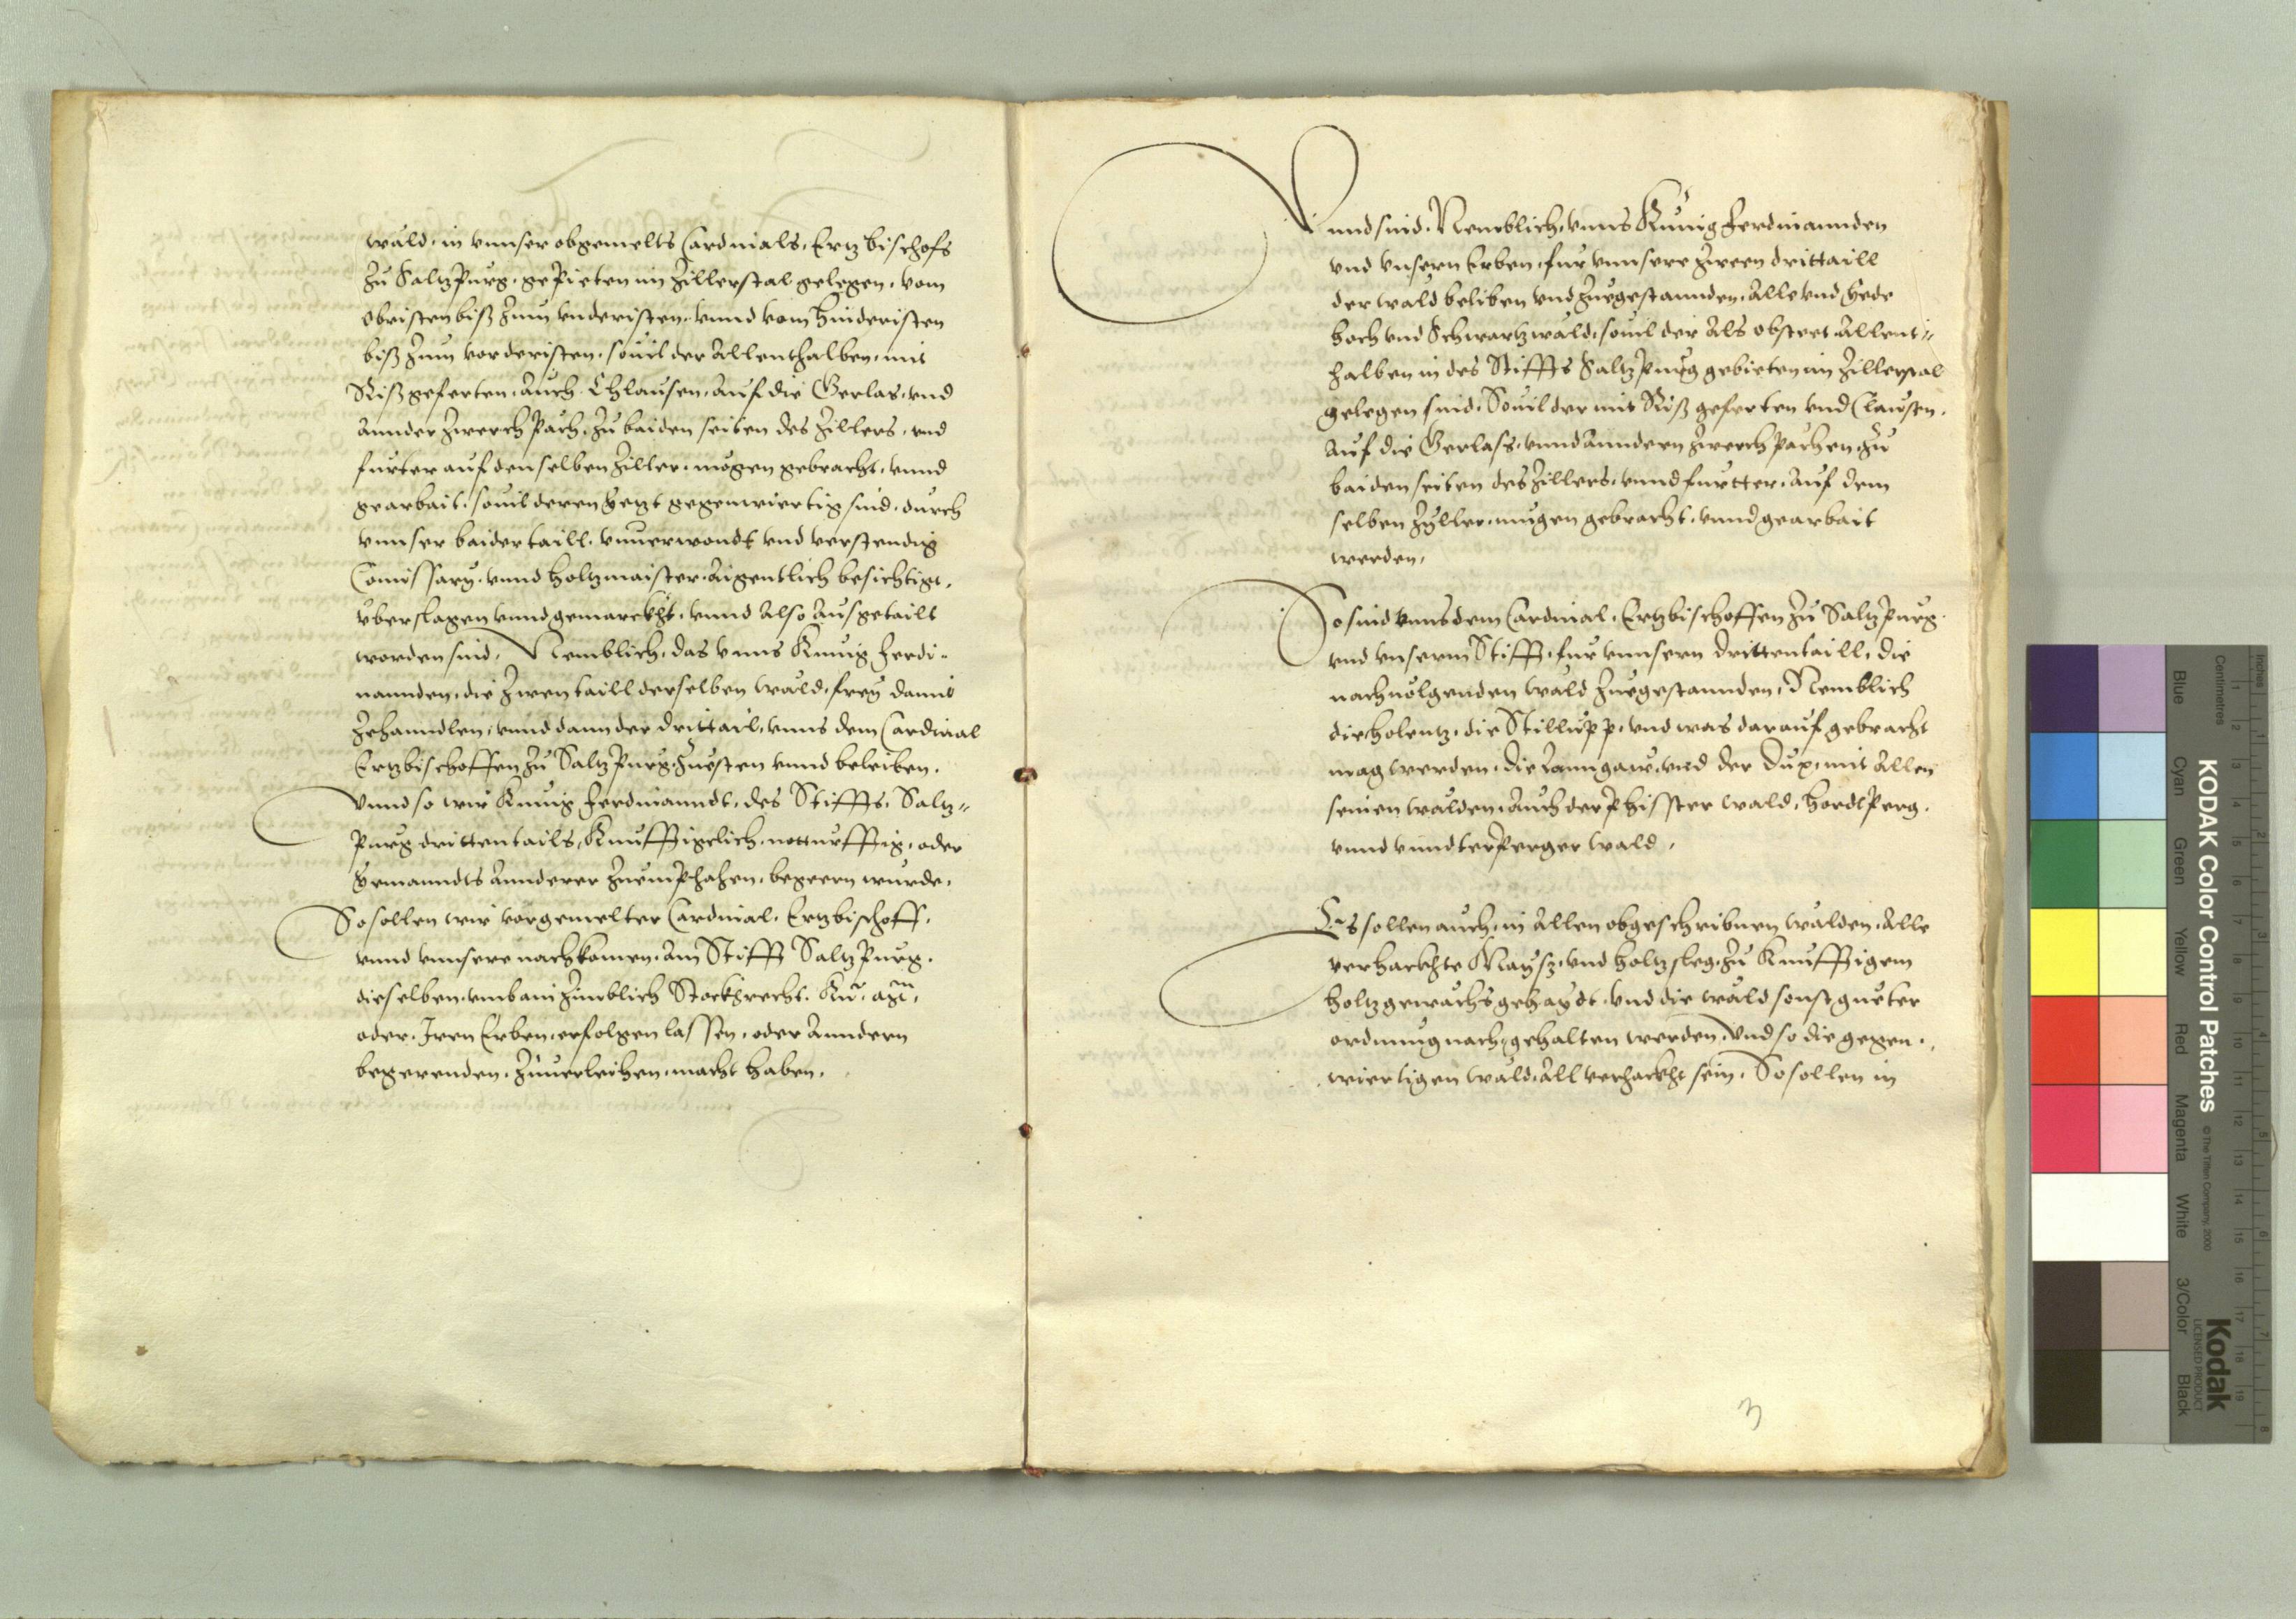 wäld, in vnnser obgemelts Cardinals, Ertzbischofs
zu Saltzpurg, gepieten im Zillerstal gelegen, vom
obristen biß zum vnderisten, vnnd vom hinderisten
biß zum vorderisten, souil der allenthalben, mit
Rißgeferten, auch Chlausen, auf die Gerlas, vnd
annder zwerch Päch, zu baiden seiten des Zillers, vnd
furter auf den selben Ziller, mögen gebracht, vnnd
gearbait, souil deren yetzt gegenwiertig sind, durch
vnnser baider taill, vnuerwondt vnd verstendig
Comissary, vnnd holtzmaister, aigentlich besichtigt,
vberslagen vnnd gemarckht, vnnd also ausgetailt
worden sind, Nemblich, das vnns Kunig Ferdi-
nannden, die zwen taill derselben wäld, frey damit
zehanndlen, vnnd dann der drittail, vnns dem Cardinal
Ertzbischoffen zu Saltzpurg, zuesten vnnd beleiben.
Vnnd so wir Kunig Ferdinanndt, des Stiffts, Saltz=
purg drittentails, Kunfftigelich, notturfftig, oder
yemanndts annderer zuemphahen, begeern wurde,
So sollen wir vorgemelter Cardinal, Ertzbischoff,
vnnd vnnsere nachkomen, am Stifft Saltzpurg,
dieselben, vmb ain zimblich Stockhrecht,
oder Iren Erben, erfolgen lassen, oder anndern
begerenden, zuuerleihen, macht haben.
Vnnd sind, Nemblich, vnns Kunig Ferdinannden
vnd vnsern Erben, fur vnnsere zween drittaill
der wäld beliben vnd zuegestannden, alle vnd yede
hoch vnd Schwartzwäld, souil der als obsteet allent=
halben in des Stiffts Saltzpurg gebieten im Zillerstal
gelegen sind, Souil der mit Riß geferten vnd Clausen,
auf die Gerlass, vnnd anndern zwerch Pächen, zu
baiden seiten des Zillers, vnnd furtter, auf dem
selben Zyller, mugen gebracht, vnnd gearbait
werden,
So sind vnns dem Cardinal, Ertzbischoffen zu Saltzpurg
vnd vnserm Stifft, fur vnnsern drittentaill, die
nachuolgenden Wäld zuegestannden, Nemblich
die holentz, die Stillupp, vnd was darauf gebracht
mag werden, die vnd der Dux, mit allen
seinen wälden, auch der wald, hordlperg,
vnnd vnndterperger wald,
Es sollen auch, in allen obgeschribnen wälden, alle
verhackhte Mayss, vnd holtzsleg, zu Kunfftigem
holtzgewächs gehaydt, vnd die wäld sonst gueter
ordnung nach, gehalten werden, Vnd so die gegen-
wiertigen wäld, all verhackht sein, So sollen in
3
KODAK Color Control Patches
© The Tiffen Company, 2000
Kodak
LICENSED PRODUCT
Inches
Centimetres
Blue Cyan Green Yellow Red Magenta White 3/Color Black